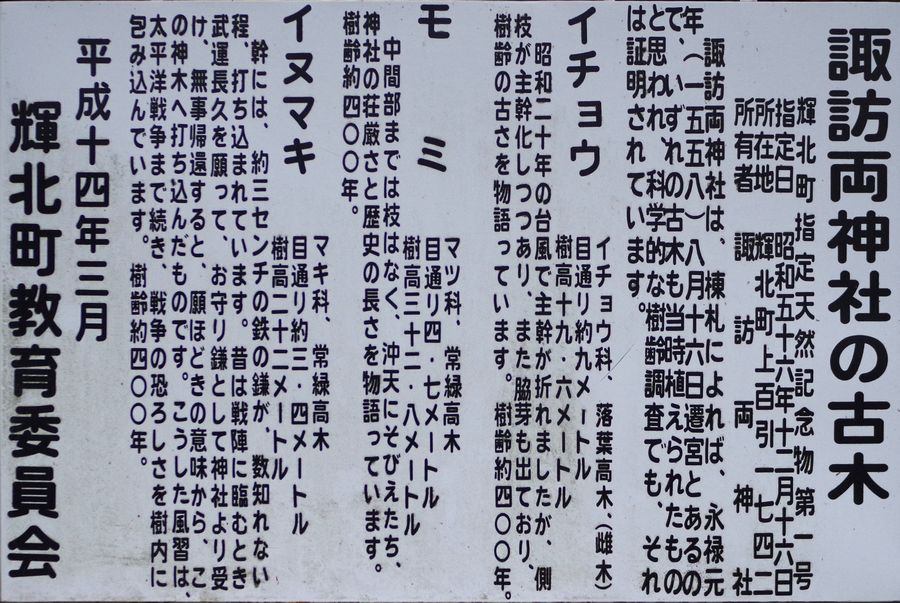 諏訪両神社の古木
輝北町 指定天然記念物第一号
指定日 昭和五十六年十二月十六日
所在地 輝北町上百引一七四二
所有者 諏訪両神社
諏訪両神社は、棟札によれば、永禄元
年(一五五八)八月十六日遷宮とあるの
で、いずれの古木も当時植えられたもの
と思われ、科学的な樹齢調査でも、それ
は証明されています。
イチョウ
イチョウ科、落葉高木、(雌木)
目通り約九メートル
樹高十九・六メートル
昭和二十年の台風で主幹が折れましたが、側
枝が主幹化しつつあり、また脇芽も出ており、
樹齢の古さを物語っています。樹齢約四〇〇年。
モミ
マツ科、常緑高木
目通り四・七メートル
樹高三十二・八メートル
中間部までは枝はなく、沖天にそびえたち、
神社の荘厳さと歴史の長さを物語っています。
樹齢約四〇〇年。
イヌマキ
マキ科、常緑高木
目通り約三・四メートル
樹高二十二メートル
幹には、約三センチの鉄の鎌が、数知れない
程、打ち込まれています。昔は戦陣に臨むとき
武運長久を願って、お守り鎌として神社より受
け、無事帰還すると、願ほどきの意味から、こ
の神木へ打ち込んだものです。こうした風習は、
太平洋戦争まで続き、戦争の恐ろしさを樹内に
包み込んでいます。樹齢約四〇〇年。
平成十四年三月
輝北町教育委員会